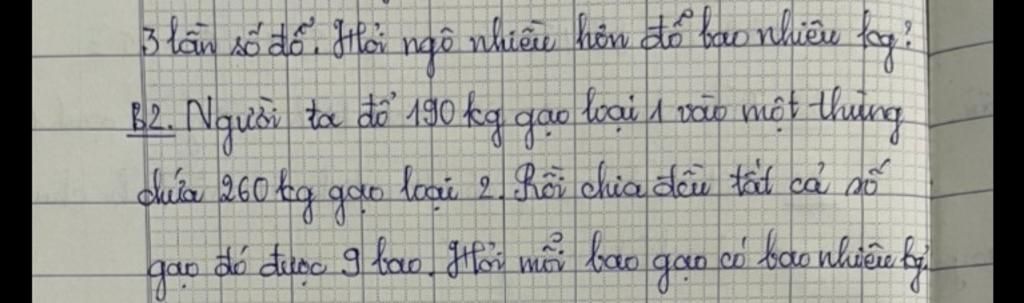 3 lần số đổ. Hỏi ngô nhiều hơn đổ bao nhiêu kg?
B2. Người ta đổ 190 kg gạo loại 1 vào một thùng
chứa 260 kg gạo loại 2. Rồi chia đều tất cả số
gạo đó được 9 bao. Hỏi mỗi bao gạo có bao nhiêu kg?